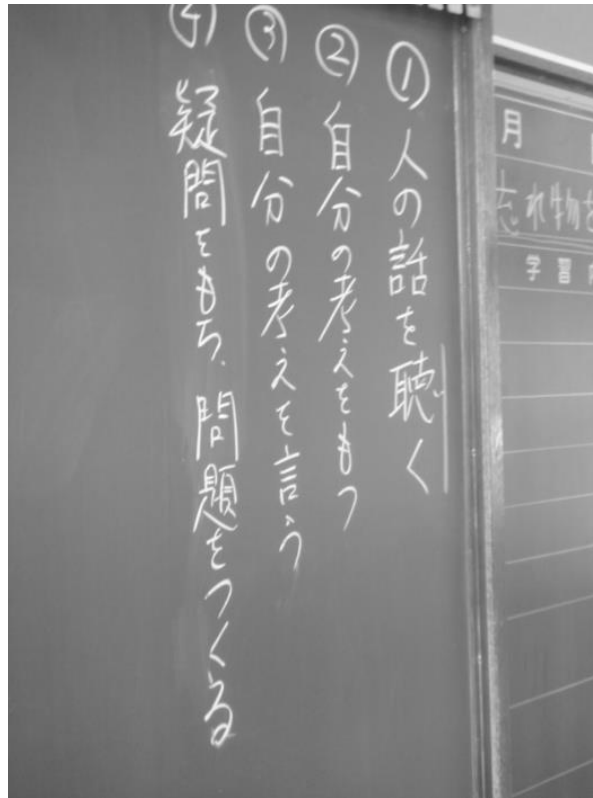 ① 人の話を聴く
② 自分の考えをもつ
③ 自分の考えを言う
④ 疑問をもち、問題をつくる
月
忘れ物
学習